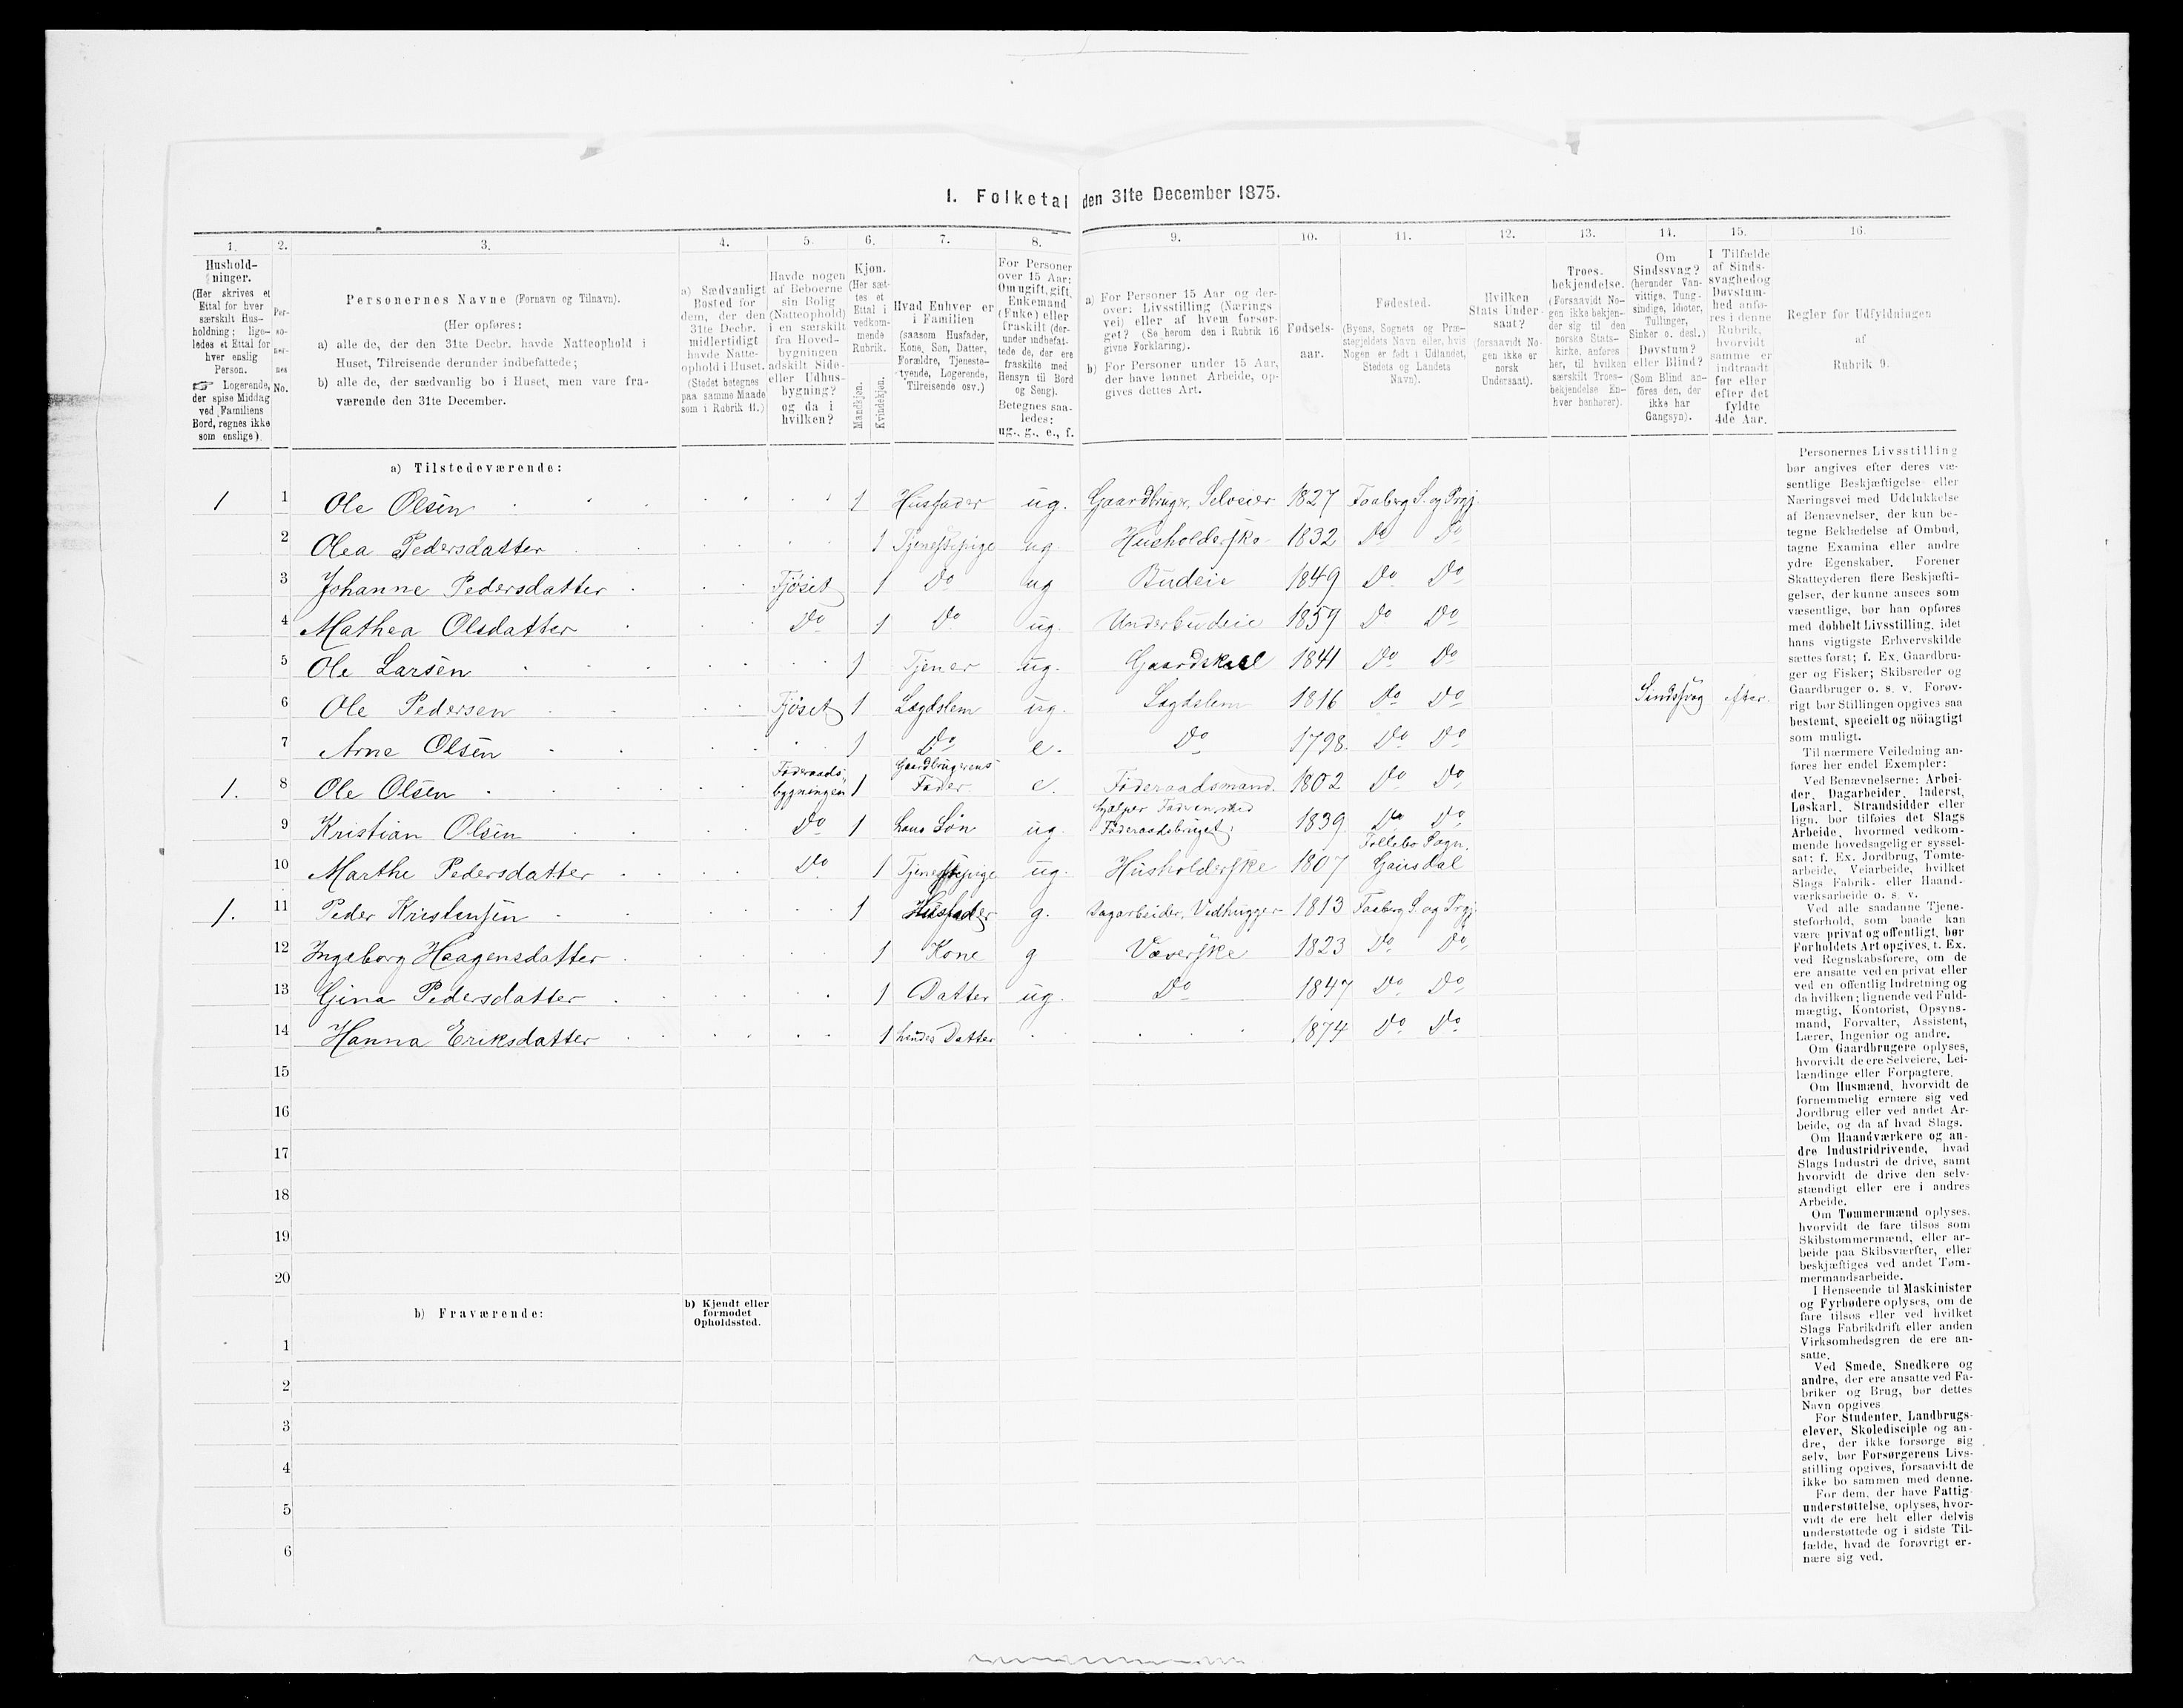 I. Folketal den 31te December 1875.
1. 2. 3. 4. 5. 6. 7. 8. 9. 10. 11. 12. 13. 14. 15. 16.
Hushold-
ninger.
(Her skrives et
Ettal for hver
særskilt Hus-
holdning; lige-
ledes et Ettal for
hver enslig
Person.
☞ Logerende,
der spise Middag
ved Familiens
Bord, regnes ikke
som enslige).
Per-
so-
ner-
nes
No.
Personernes Navne (Fornavn og Tilnavn).
(Her opføres:
a) alle de, der den 31te Decbr. havde Natteophold i
Huset, Tilreisende derunder indbefattede;
b) alle de, der sædvanlig bo i Huset, men vare fra-
værende den 31te December.
a) Sædvanligt
Bosted for
dem, der den
31te Decbr.
midlertidigt
havde Natte-
ophold i Huset.
(Stedet betegnes
paa samme Maade
som i Rubrik 11.)
Havde nogen
af Beboerne
sin Bolig
(Natteophold)
i en særskilt
fra Hoved-
bygningen
adskilt Side-
eller Udhus-
bygning?
og da i
hvilken?
Kjøn.
(Her sæt-
tes et
Ettal i
vedkom-
mende
Rubrik.
Mandkjøn.
Kvindekjøn.
Hvad Enhver er
i Familien
(saasom Husfader,
Kone, Søn, Datter,
Forældre, Tjeneste-
tyende, Logerende,
Tilreisende osv.)
For Personer
over 15 Aar:
Om ugift, gift,
Enkemand
(Enke) eller
fraskilt (der-
under indbefat-
tede de, der ere
fraskilte med
Hensyn til Bord
og Seng).
Betegnes saa-
ledes:
ug., g., e., f.
a) For Personer 15 Aar og der-
over: Livsstilling (Nærings-
vei) eller af hvem forsør-
get? (Se herom den i Rubrik 16
givne Forklaring).
b) For Personer under 15 Aar,
der have lønnet Arbeide, op-
gives dettes Art.
Fødsels-
aar.
Fødested.
(Byens, Sognets og Præ-
stegjeldets Navn eller, hvis
Nogen er født i Udlandet,
Stedets og Landets
Navn).
Hvilken
Stats Under-
saat?
(forsaavidt No-
gen ikke er
norsk
Undersaat).
Troes-
bekjendelse.
(Forsaavidt No-
gen ikke bekjen-
der sig til den
norske Stats-
kirke, anføres
her, til hvilken
særskilt Troes-
bekjendelse En-
hver henhører).
Om
Sindssvag?
(herunder Van-
vittige, Tung-
sindige, Idioter,
Tullinger,
Sinker o. desl.)
Døvstum?
eller Blind?
(Som Blind an-
føres den, der
ikke har
Gangsyn).
I Tilfælde
af Sinds-
svaghed og
Døvstum-
hed anfø-
res i denne
Rubrik,
hvorvidt
samme er
indtraadt
før eller
efter det
fyldte
4de Aar.
Regler for Udfyldningen
af
Rubrik 9.
a) Tilstedeværende:
1 1 Ole Olsen 1 Husfader ug. Gaardbruger, Selveier 1827 Faaberg S. og Prgj.
2 Olea Pedersdatter 1 Tjenestepige ug Husholderske 1832 Do Do
3 Johanne Pedersdatter Fjøset 1 Do ug Budeie 1849 Do Do
4 Mathea Olsdatter Do 1 Do ug. Underbudeie 1859 Do Do
5 Ole Larsen 1 Tjener ug. Gaardskal 1841 Do Do
6 Ole Pedersen Fjøset 1 Lægdslem ug. Lægdslem 1816 Do Do Sindssvag efter.
7 Arne Olsen 1 Do e. Do 1798. Do Do
1. 8 Ole Olsen Føderaads-bygningen 1 Gaardbrugerens Fader e. Føderaadsmand. 1802 Do Do
9 Kristian Olsen Do 1 hans Søn ug. Hjælper Faderen med Føderaadsbruget 1839 Do Do
10 Marthe Pedersdatter Do 1 Tjenestepige ug. Husholderske 1807 Follebo Sogn, Gausdal
1. 11 Peder Kristensen 1 Husfader g. Dagarbeider, Vedhugger 1813 Faaberg S. og Prgj.
12 Ingeborg Haagensdatter 1 Kone g Væverske 1823 Do Do
13 Gina Pedersdatter 1 Datter ug. Do 1847 Do Do
14 Hanna Eriksdatter 1 hendes Datter 1874 Do Do
15
16
17
18
19
20
b) Fraværende:
b) Kjendt eller
formodet
Opholdssted.
1
2
3
4
5
6
Personernes Livsstilling
bør angives efter deres væ-
sentlige Beskjæftigelse eller
Næringsvei med Udelukkelse
af Benævnelser, der kun be-
tegne Beklædelse af Ombud,
tagne Examina eller andre
ydre Egenskaber. Forener
Skatteyderen flere Beskjæfti-
gelser, der kunne ansees som
væsentlige, bør han opføres
med dobbelt Livsstilling, idet
hans vigtigste Erhvervskilde
sættes først; f. Ex. Gaardbru-
ger og Fisker; Skibsreder og
Gaardbruger o. s. v. Forøv-
rigt bør Stillingen opgives saa
bestemt, specielt og nöiagtigt
som muligt.
Til nærmere Veiledning an-
føres her endel Exempler:
Ved Benævnelserne: Arbei-
der, Dagarbeider, Inderst,
Løskarl, Strandsidder eller
lign. bør tilføies det Slags
Arbeide, hvormed vedkom-
mende hovedsagelig er syssel-
sat; f. Ex. Jordbrug, Tomte-
arbeide, Veiarbeide, hvilket
Slags Fabrik- eller Haand-
værksarbeide o. s. v.
Ved alle saadanne Tjene-
steforhold, som baade kan
være privat og offentligt, bør
Forholdets Art opgives, t. Ex.
ved Regnskabsførere, om de
ere ansatte ved en privat eller
ved en offentlig Indretning og
da hvilken; lignende ved Fuld-
mægtig, Kontorist, Opsyns-
mand, Forvalter, Assistent,
Lærer, Ingeniør og andre.
Om Gaardbrugere oplyses,
hvorvidt de ere Selveiere, Lei-
lændinge eller Forpagtere.
Om Husmænd, hvorvidt de
fornemmelig ernære sig ved
Jordbrug eller ved andet Ar-
beide, og da af hvad Slags.
Om Haandværkere og an-
dre Industridrivende, hvad
Slags Industri de drive, samt
hvorvidt de drive den selv-
stændigt eller ere i andres
Arbeide.
Om Tømmermænd oplyses,
hvorvidt de fare tilsøs som
Skibstømmermænd, eller ar-
beide paa Skibsværfter, eller
beskjæftiges ved andet Tøm-
mermandsarbeide.
I Henseende til Maskinister
og Fyrbødere oplyses, om de
fare tilsøs eller ved hvilket
Slags Fabrikdrift eller anden
Virksomhedsgren de ere an-
satte.
Ved Smede, Snedkere og
andre, der ere ansatte ved Fa-
briker og Brug, bør dettes
Navn opgives
For Studenter, Landbrugs-
elever, Skoledisciple og an-
dre, der ikke forsørge sig
selv, bør Forsørgerens Livs-
stilling opgives, forsaavidt de
ikke bo sammen med denne.
For dem, der have Fattig-
understøttelse, oplyses, hvor-
vidt de ere helt eller delvis
understøttede og i sidste Til-
fælde, hvad de forøvrigt er-
nære sig ved.